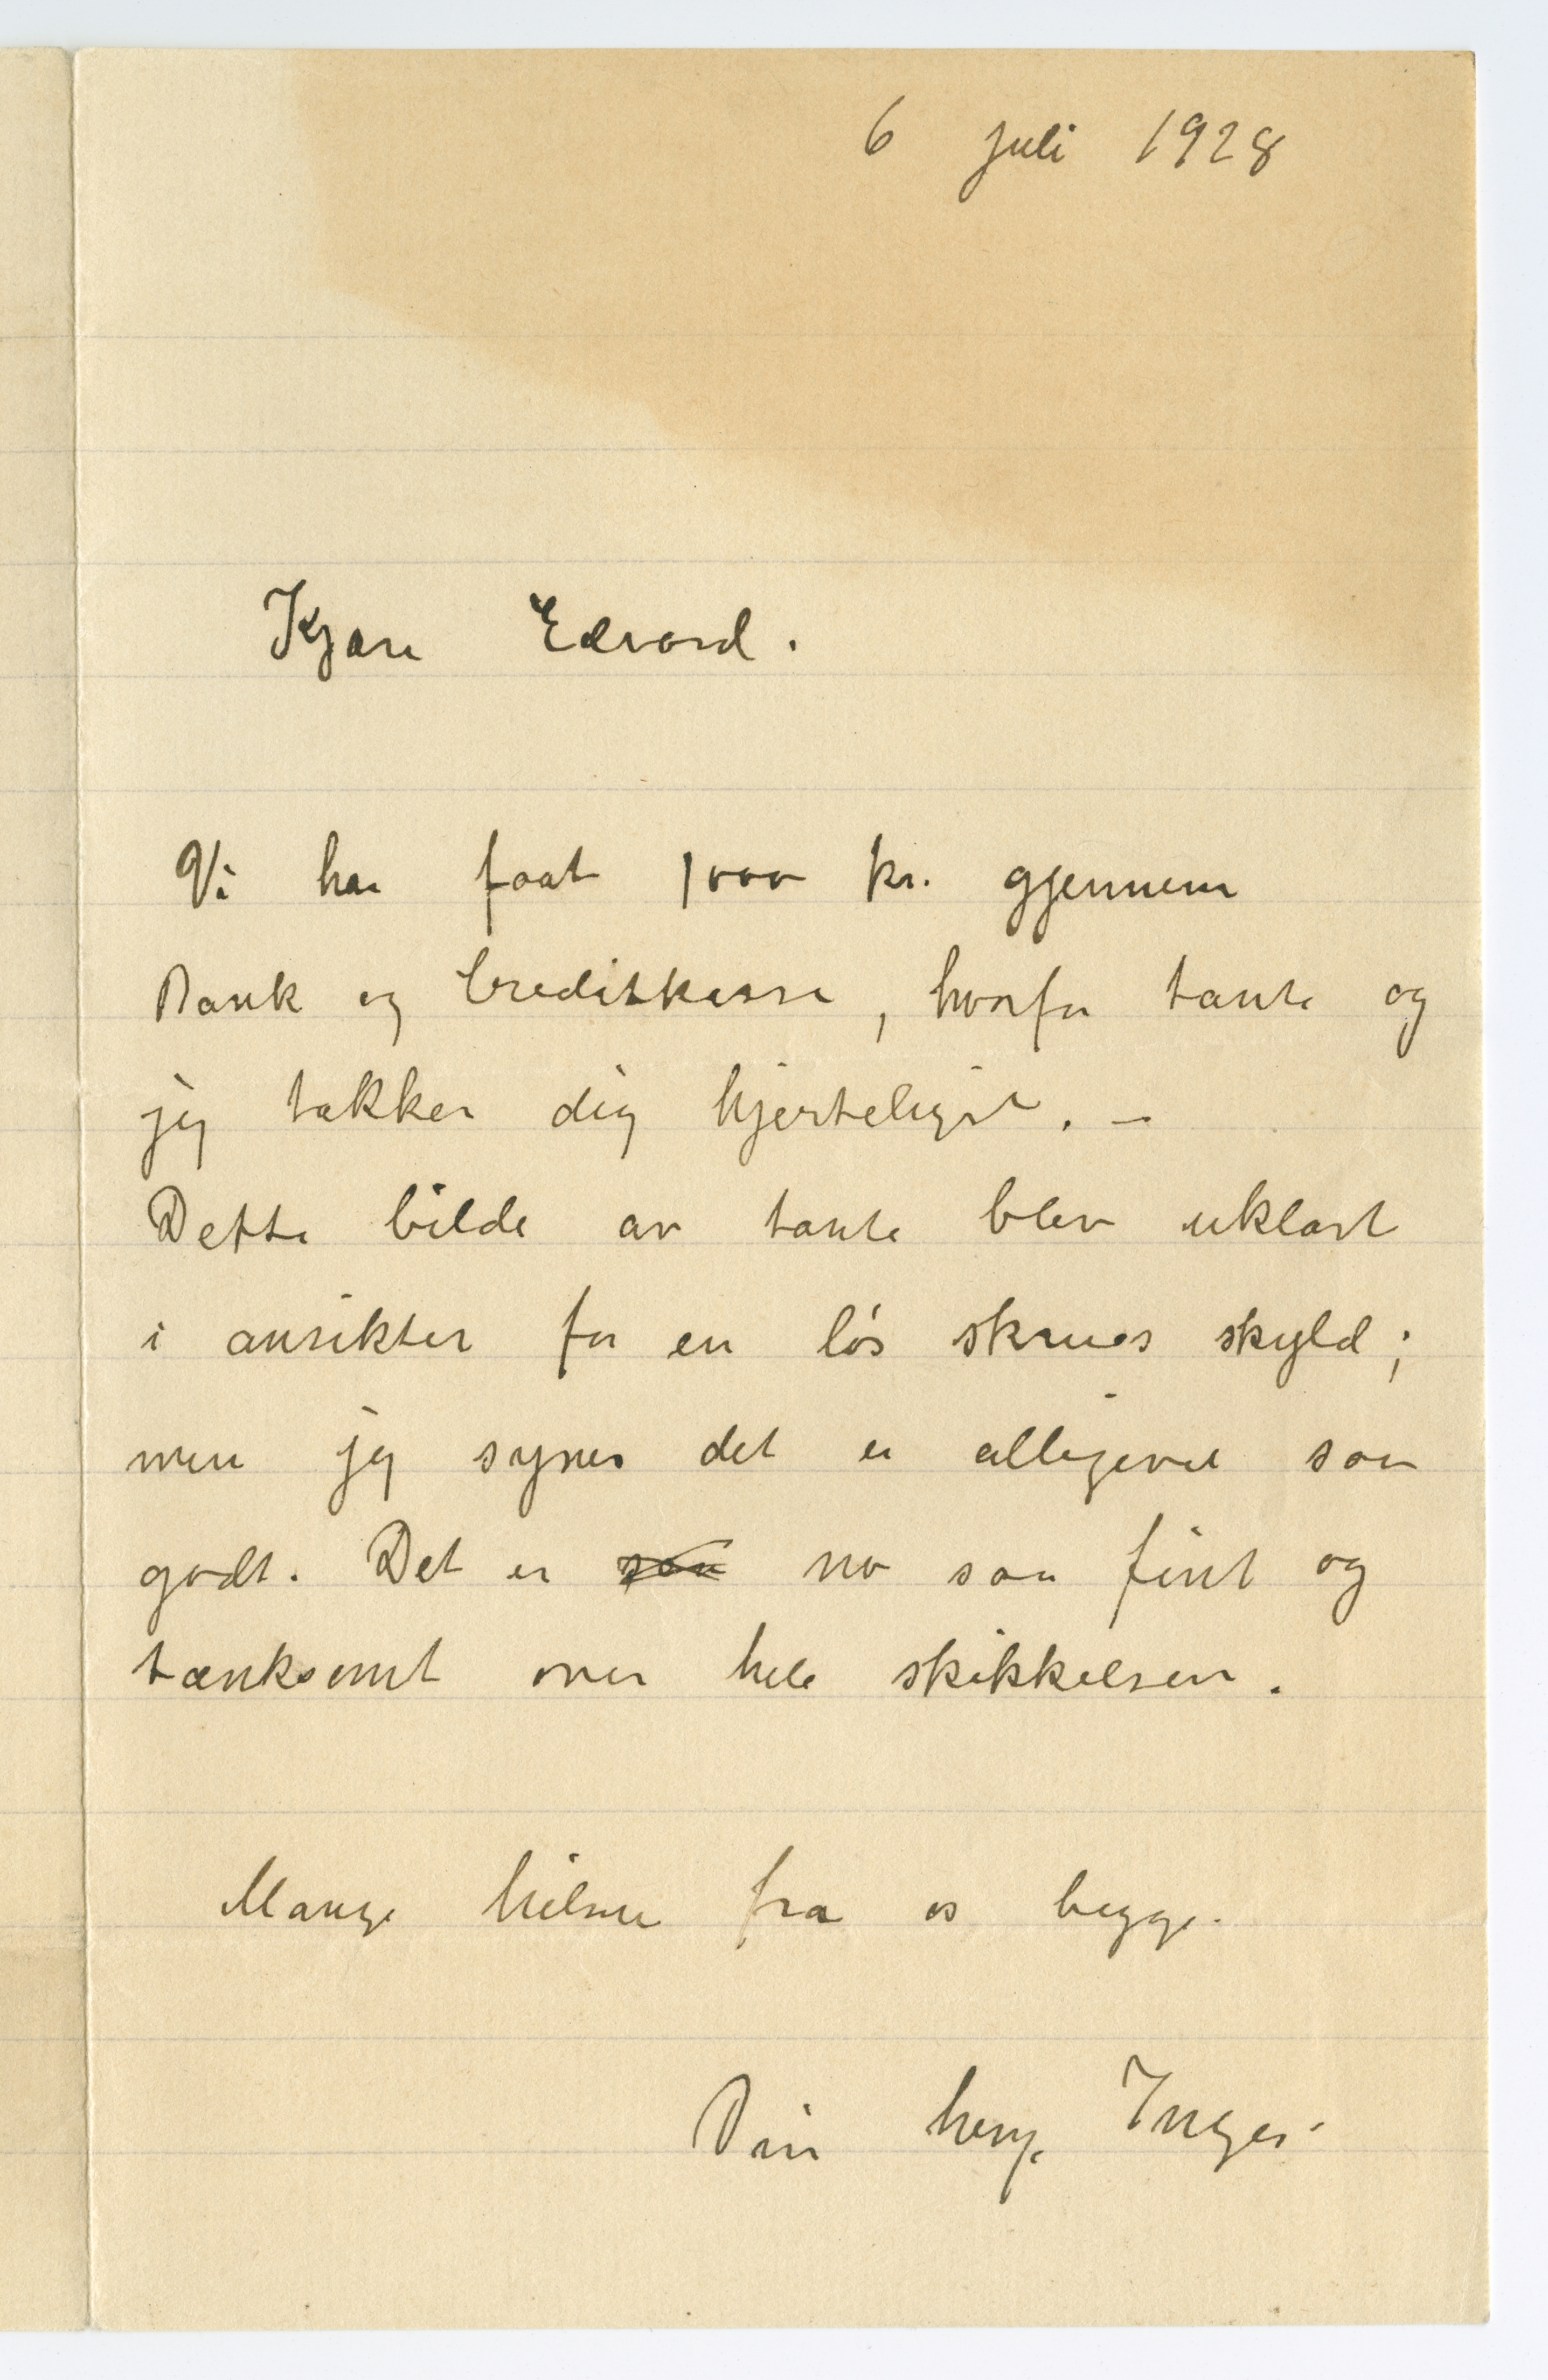 6 juli 1928
Kjære Edvard.
Vi har faat 1000 kr. gjennem
Bank og Creditkasse, hvorfor tante og
jeg takker dig hjerteligst. –
Dette bilde av tante blev uklart
i ansiktet for en løs skrues skyld;
men jeg synes det er alligevel saa
godt. Det er saa no saa fint og
tænksomt over hele skikkelsen.
Mange hilsner fra os begge.
Din heng. Inger.